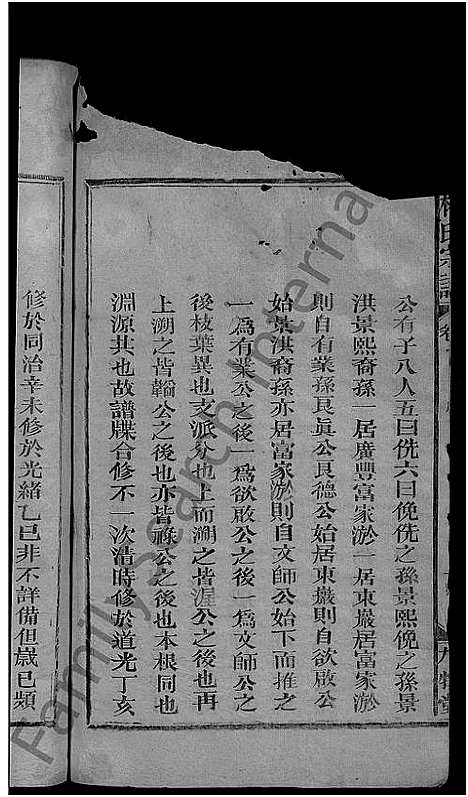 氏宗譜
公有子八人五曰侁六曰俛侁之孫景熙俛之孫景
洪景熙裔孫一居廣豐富家淤一居東巖居富家淤
則自有業孫良眞公良德公始居東巖則自欲啟公
始景洪裔孫亦居富家淤則自文師公始下而推之
一爲有業公之後一爲欲啟公之後一爲文師公之
後枝葉異也支派分也上而溯之皆渥公之後也再
上溯之皆韜公之後也亦皆祿公之後也本根同也
淵源共也故譜牒合修不一次清時修於道光丁亥
修於同治辛未修於光緒乙巳非不詳備但歲已頻
Family Search International